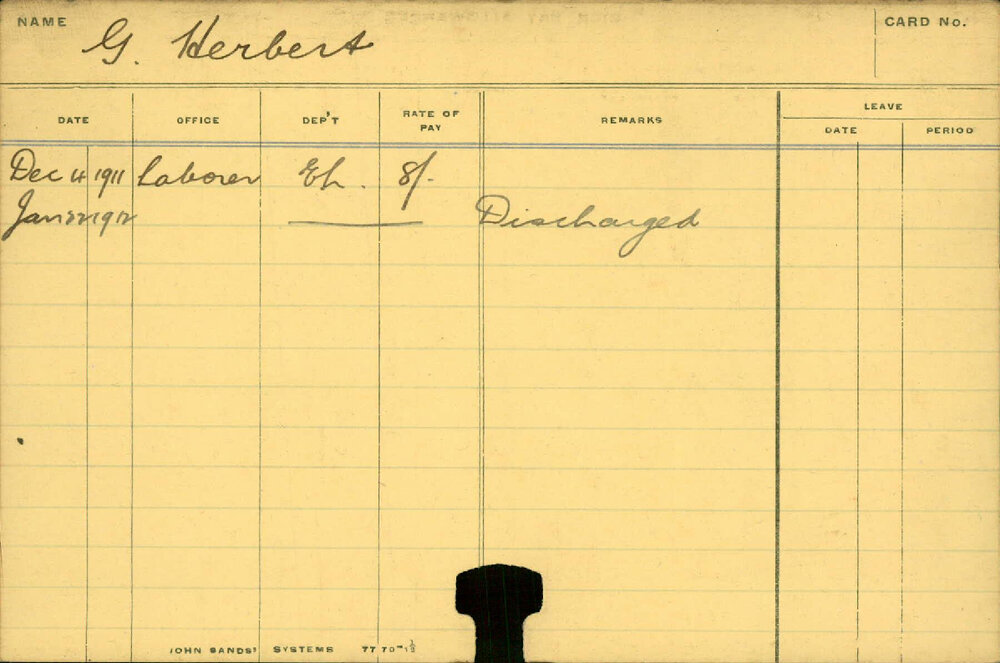 NAME G. Herbert CARD No.
LEAVE
DATE OFFICE DEP'T RATE OF PAY REMARKS DATE PERIOD
Dec 4 1911 Laborer Eh. 8/-
Jan 22 1912 Discharged
JOHN SANDS' SYSTEMS 77 70